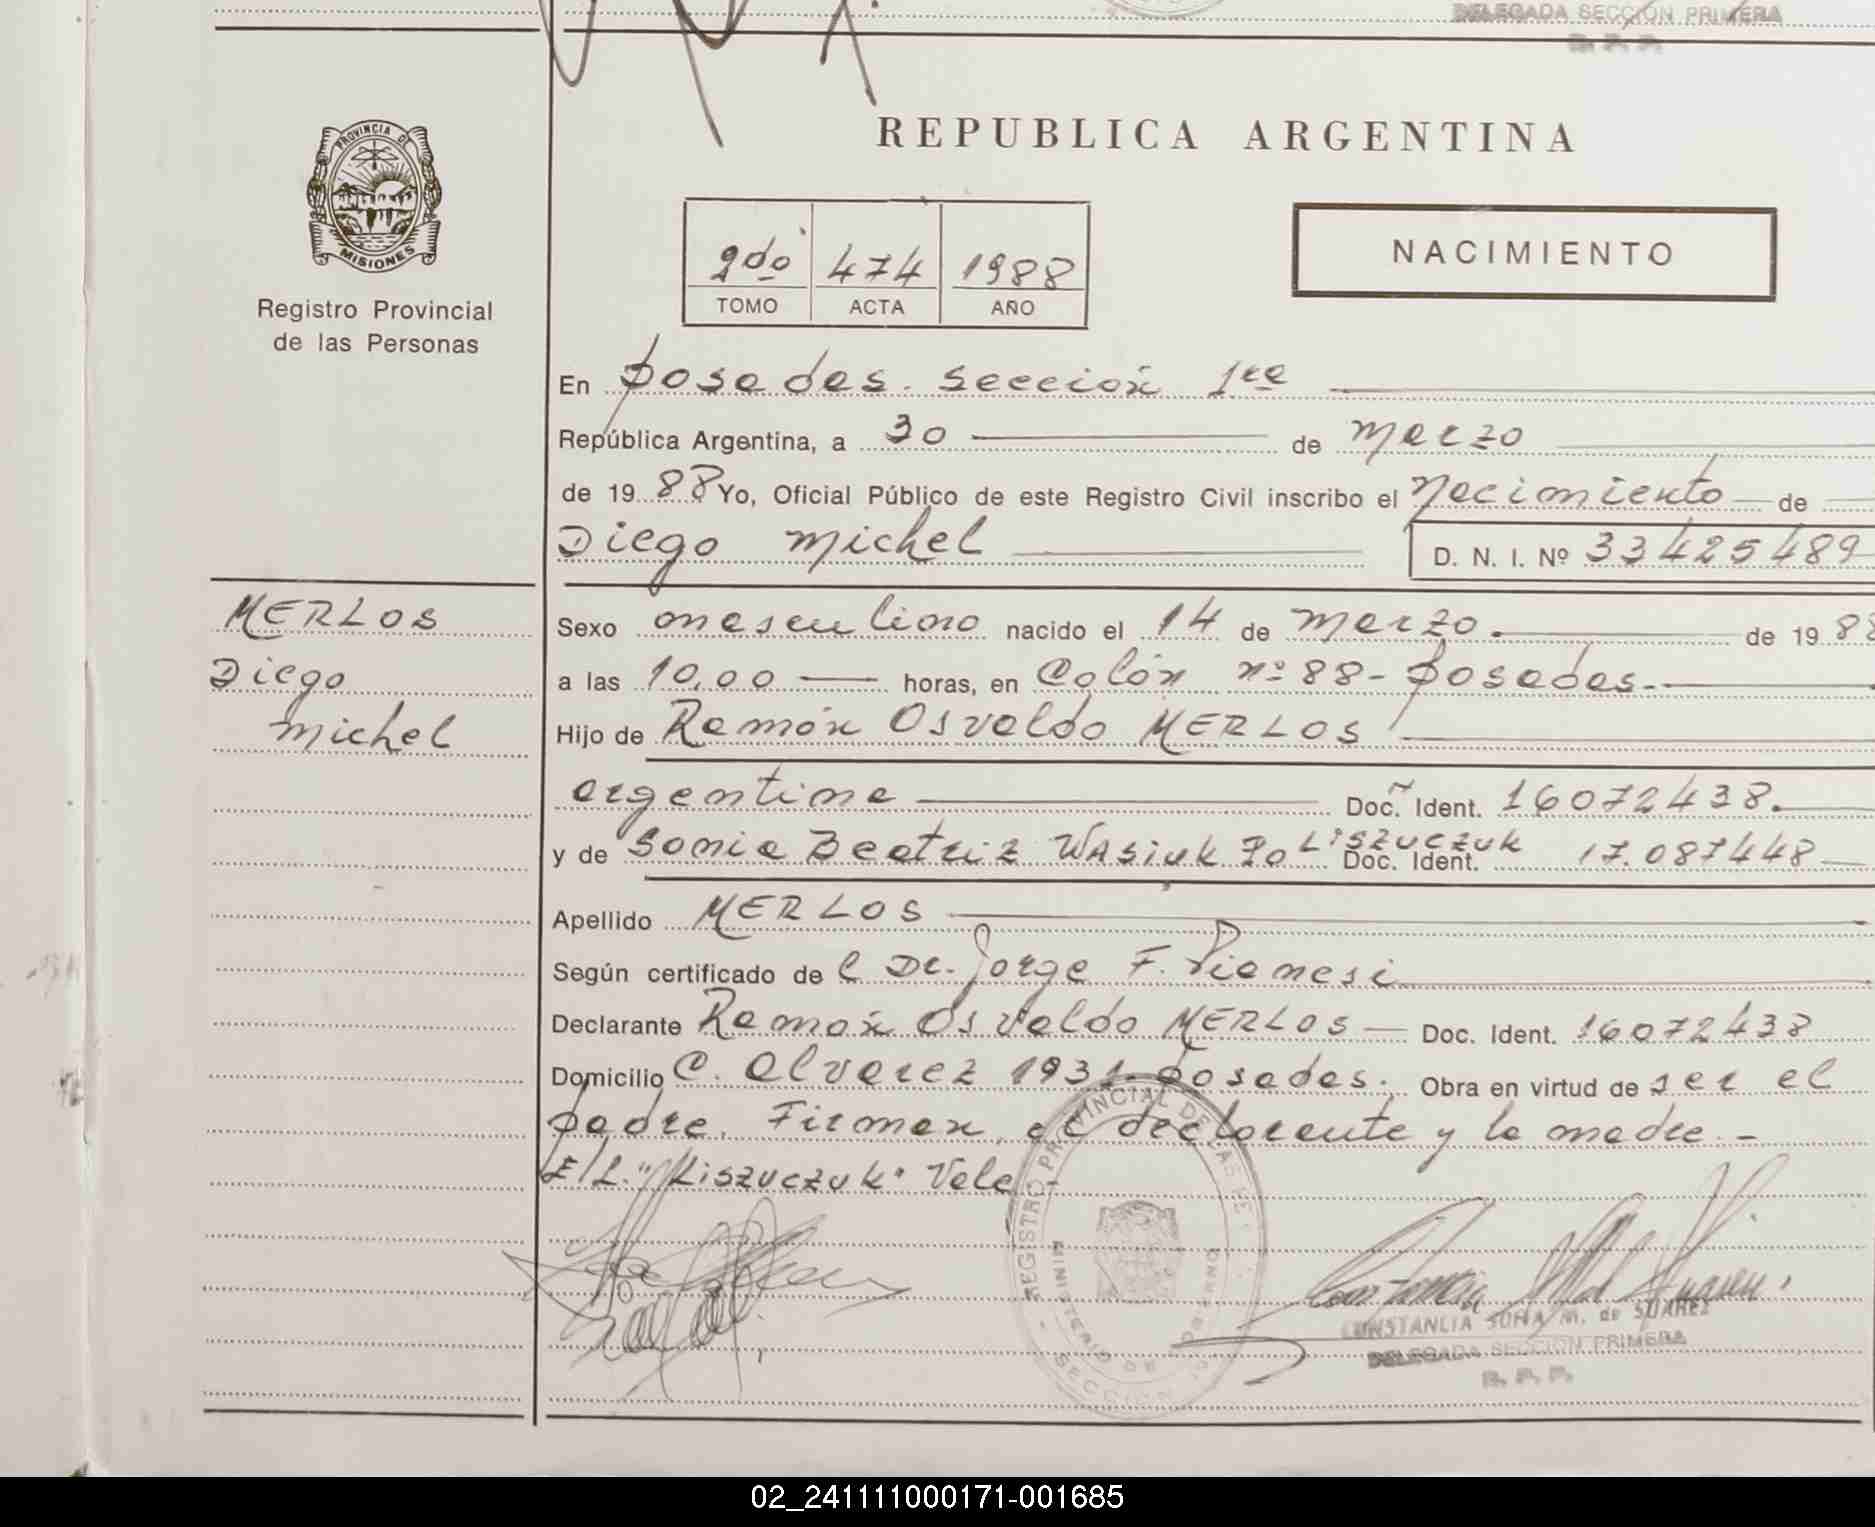 DELEGADA SECCION PRIMERA
R. P. P.
REPUBLICA ARGENTINA
PROVINCIA DE
MISIONES
Registro Provincial
de las Personas
2do 474 1988
TOMO ACTA AÑO
NACIMIENTO
En Posadas. Sección 1ra
República Argentina, a 30 de Marzo
de 1988 Yo, Oficial Público de este Registro Civil inscribo el Nacimiento de
Diego Michel D. N. I. Nº 33425489
MERLOS
Diego
Michel
Sexo masculino nacido el 14 de Marzo. de 1988
a las 10,00 horas, en Colón nº 88- Posadas.-
Hijo de Ramón Osvaldo MERLOS
argentina Doc. Ident. 16072438.
y de Sonia Beatriz WASIUK Po LISZUCZUK Doc. Ident. 17.087448
Apellido MERLOS
Según certificado de l Dr. Jorge F. Pianesi
Declarante Ramón Osvaldo MERLOS Doc. Ident. 16072438
Domicilio C. Alvarez 1931- Posadas. Obra en virtud de ser el
padre. Firman, el declarante y la madre.-
E/L. "Liszuczuk" Vale
REGISTRO PROVINCIAL DE LAS
MINISTERIO DE GOBIERNO
SECCION
CONSTANCIA SOFIA M. DE SUAREZ
DELEGADA SECCION PRIMERA
R. P. P.
02_241111000171-001685